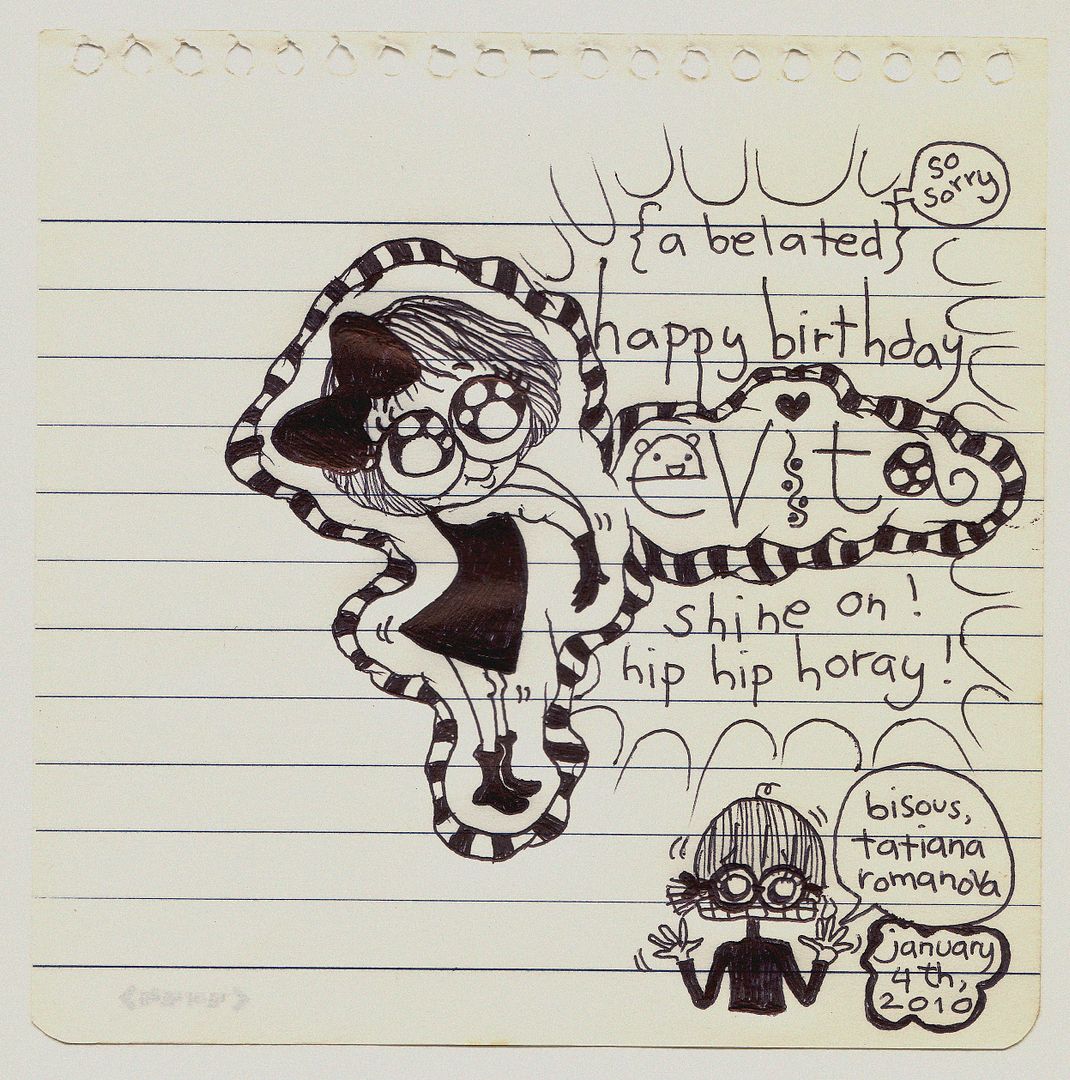 so
sorry
{a belated}
happy birthday
evita
shine on!
hip hip horay!
bisous,
tatiana
romanova
january
4th,
2010